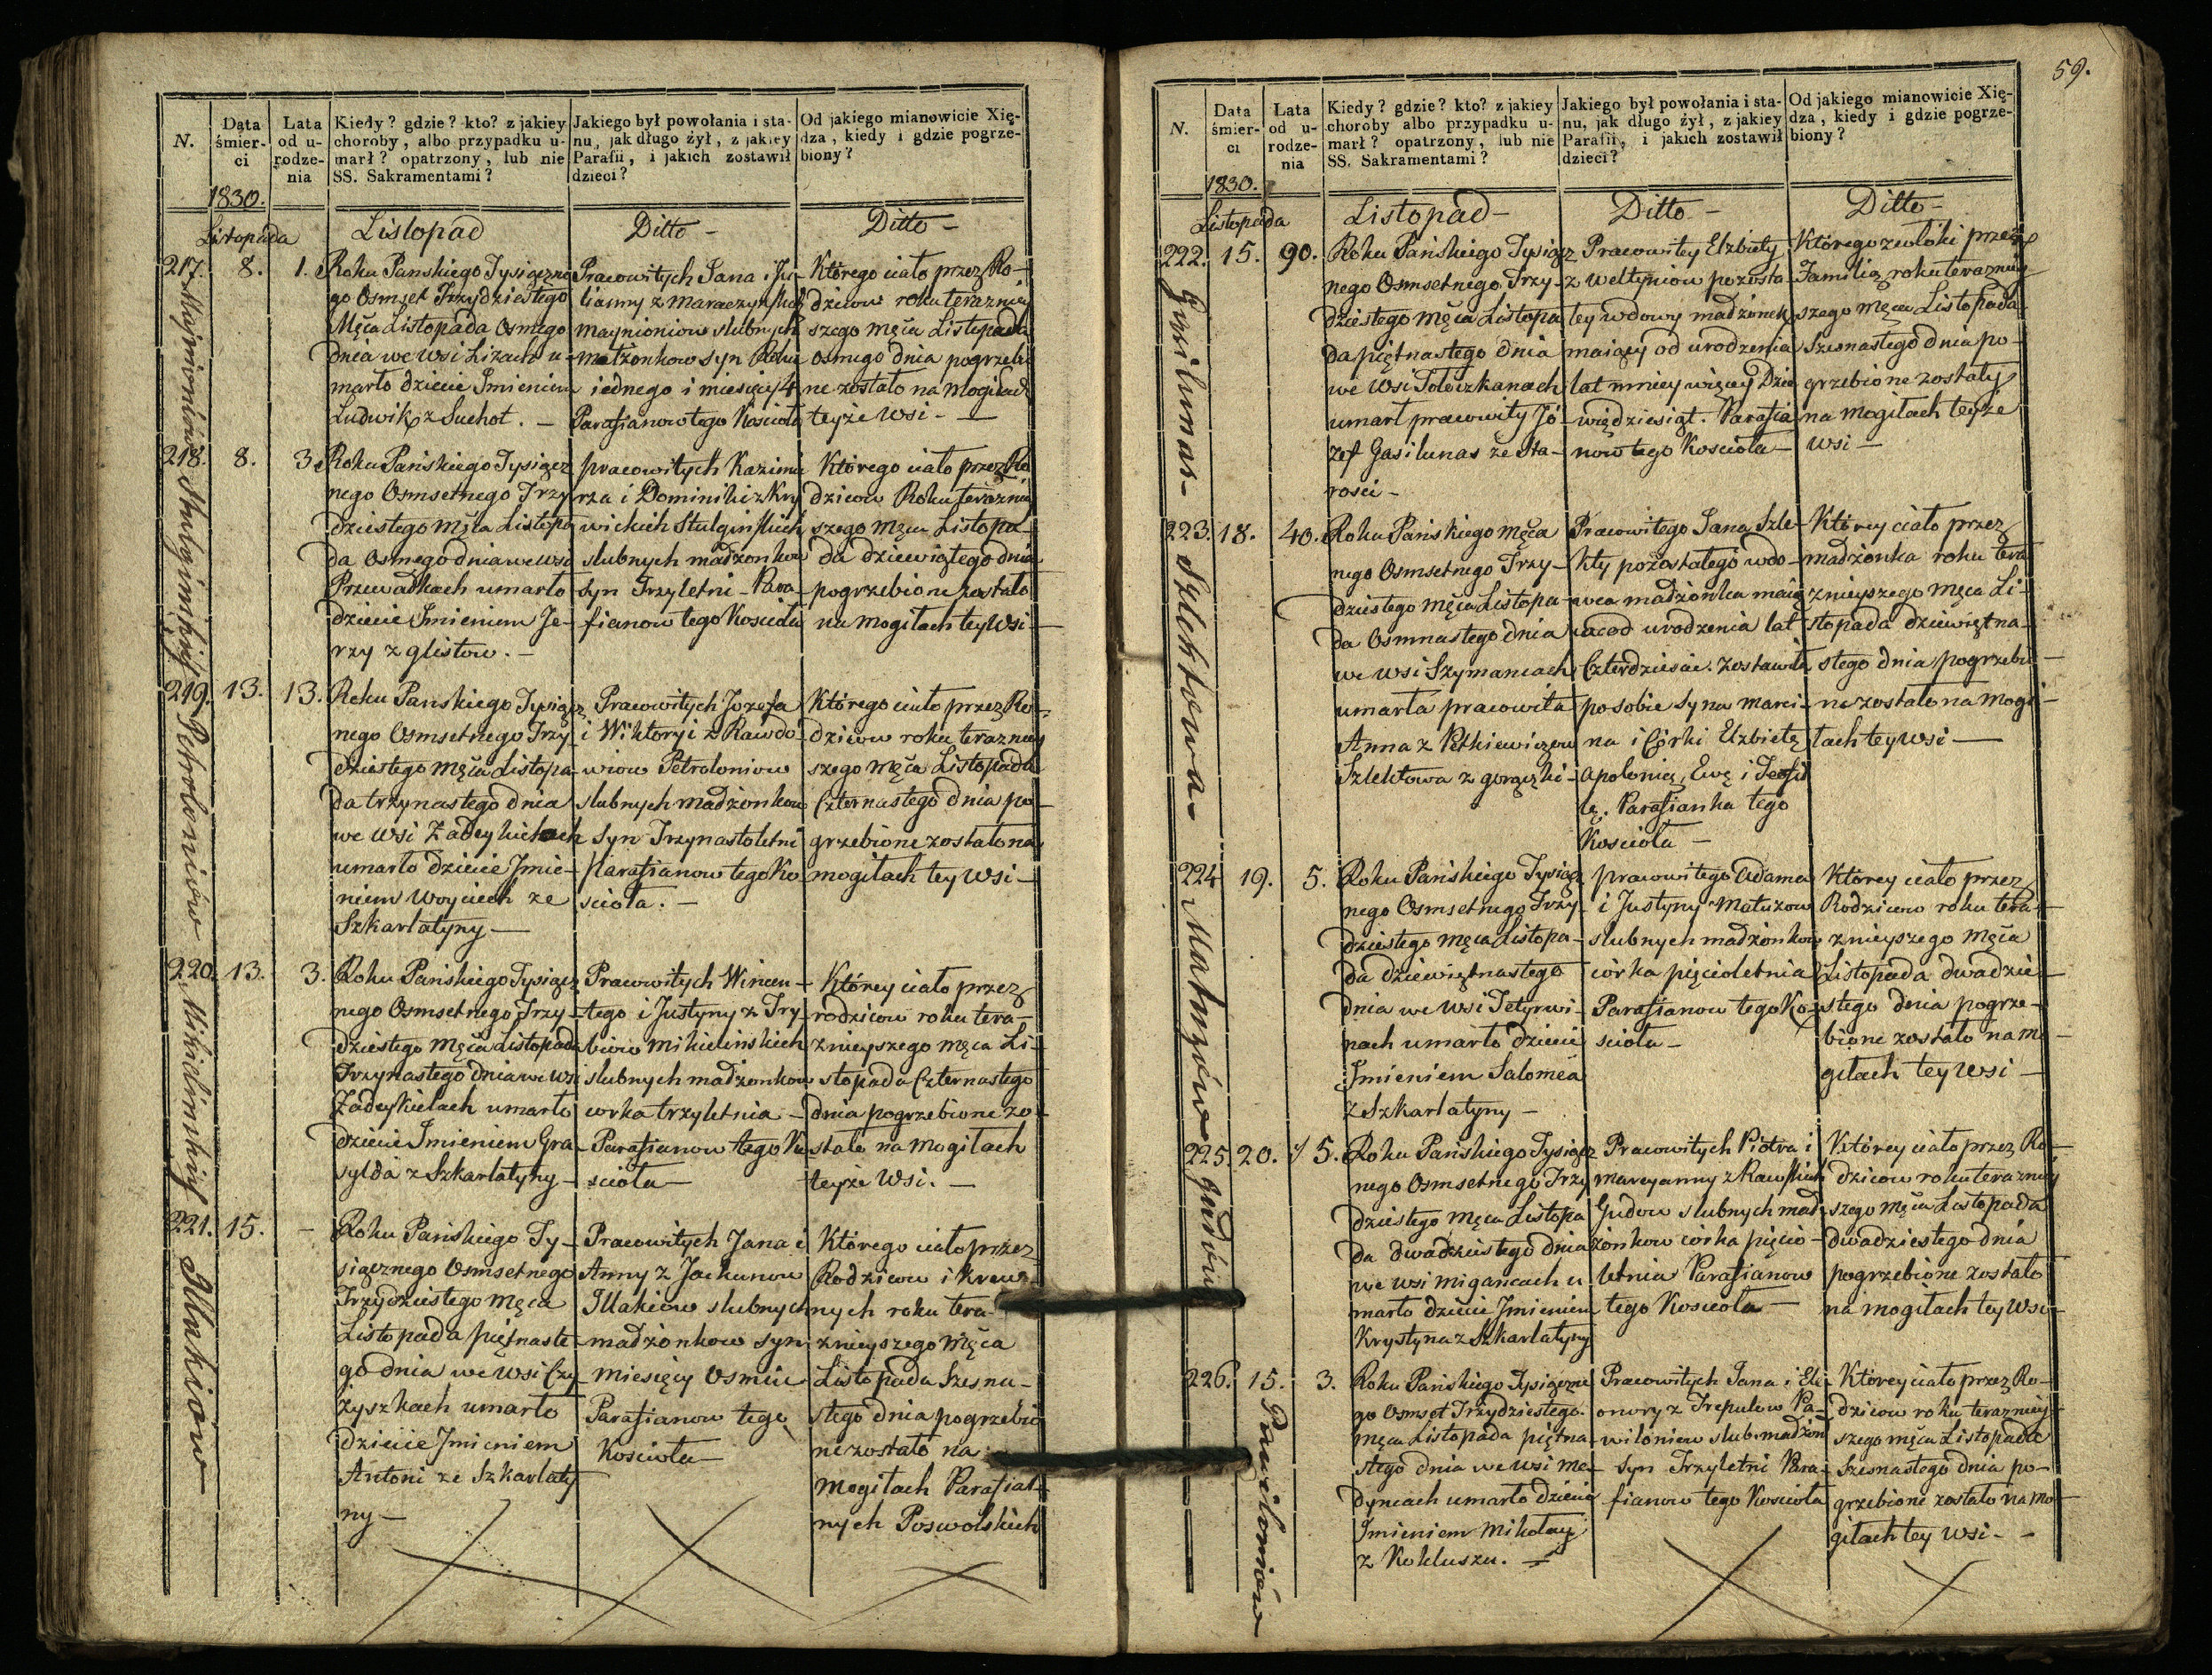 N.
Data śmierci
Lata od urodzenia
Kiedy? gdzie? kto? z jakiey
choroby, albo przypadku u-
marł? opatrzony, lub nie
SS. Sakramentami?
Jakiego był powołania i sta-
nu, jak długo żył, z jakiey
Parafii, i jakich zostawił
dzieci?
Od jakiego mianowicie Xię-
dza, kiedy i gdzie pogrze-
biony?
1830.
Listopada
Listopad
Ditto -
Ditto -
217. 8. 1.
Roku Panskiego Tysiączne
go Osmset Trzydziestego
Męca Listopada Osmego
dnia we wsi Lizach u-
marło dziecie Imieniem
Ludwik z Suchot. -
Pracowitych Jana i Ju-
lianny z
Maynioniow slubnych
małżonkow syn Roku
iednego i miesięcy 4
Parafianow tego Koscioła
Którego ciało przez Ro-
dzicow roku teraźniey
szego męca Listopada
osmego dnia pogrzebio
ne zostało na Mogiłach
teyże wsi -
Maynioniów
218. 8. 3.
Roku Pańskiego Tysiącz
nego Osmsetnego Trzy
dziestego Męca Listopa
da Osmego dnia we wsi
Przewałkach umarło
dziecie Imieniem Je-
rzy z glistow. -
pracowitych Kazimie
rza i Dominiki z Kry
wickich Stulginskich
slubnych madżonkow
syn Trzyletni - Para
fianow tego Koscioła
Którego ciało przez Ro
dzicow Roku teraznie
szego Męca Listopa-
da dziewiątego dnia
pogrzebione zostało
na mogiłach tey wsi -
Stulginskich
219. 13. 13.
Roku Panskiego Tysiącz
nego Osmsetnego Trzy
dziestego Męca Listopa-
da trzynastego dnia
we wsi Zadeykielach
umarło dziecie Imie-
niem Woyciech ze
Szkarlatyny -
Pracowitych Jozefa
i Wiktoryi z Rawdo
wiow Petroloniow
slubnych madżonkow
syn Trzynastoletni
Parafianow tego Ko
scioła. -
Którego ciało przez Ro-
dzicow roku terazniey
szego Męca Listopada
Czternastego dnia po-
grzebione zostało na
mogiłach tey wsi -
Petroloniów
220. 13. 3.
Roku Pańskiego Tysiącz
nego Osmsetnego Trzy-
dziestego Męca Listopada
Trzynastego dnia we wsi
Zadeykielach umarło
dziecie Imieniem Gra-
sylda z Szkarlatyny -
Pracowitych Wincen-
tego i Justyny z Try-
biow Mikielinskich
slubnych madżonkow
corka trzyletnia -
Parafianow tego Ko
scioła -
Którey ciało przez
rodzicow roku tera-
znieyszego męca Li-
stopada Czternastego
dnia pogrzebione zo-
stało na mogiłach
teyże wsi. -
Mikielinskich
221. 15. -
Roku Pańskiego Ty-
siącznego Osmsetnego
Trzydziestego Męca
Listopada piętnaste-
go dnia we wsi Czy
żyszkach umarło
dziecie Imieniem
Antoni ze Szkarlaty
ny -
Pracowitych Jana i
Anny z Jackunow
Illakiow slubnych
madżonkow syn
miesięcy Osmiu
Parafianow tego
Kosciola -
Którego ciało przez
Rodzicow i krew
nych roku tera-
znieyszego męca
Listopada Szesna-
stego dnia pogrzebio
ne zostało na
mogiłach Parafial-
nych Poswolskich
Illakiów
59.
N.
Data śmierci
Lata od urodzenia
Kiedy? gdzie? kto? z jakiey
choroby albo przypadku u-
marł? opatrzony, lub nie
SS. Sakramentami?
Jakiego był powołania i sta-
nu, jak długo żył, z jakiey
Parafii, i jakich zostawił
dzieci?
Od jakiego mianowicie Xię-
dza, kiedy i gdzie pogrze-
biony?
1830.
Listopada
Listopad -
Ditto -
Ditto -
222. 15. 90.
Roku Pańskiego Tysiącz
nego Osmsetnego Trzy-
dziestego Męca Listopa
da piętnastego dnia
we wsi Toleczkanach
umarł pracowity Jó-
zef Gasilunas ze Sta-
rosci -
Pracowitey Elzbiety
z Weltyniow pozosta-
łey wdowy madżonek
maiący od urodzenia
lat mniey więcey Dzie
więdziesiąt. Parafia
now tego Kosciola -
Którego zwłoki przez
Familią roku terazniey
szego męca Listopada
szesnastego dnia po-
grzebione zostały
na mogiłach teyże
wsi -
Gasilunas -
223. 18. 40.
Roku Pańskiego Męca
nego Osmsetnego Trzy-
dziestego męca Listopa-
da Osmnastego dnia
we wsi Szymancach
umarła pracowita
Anna z Petkiewiczow
Szlektowa z gorączki -
Pracowitego Jana Szle-
kty pozostałego wdo-
wca madżonka maią
ca od urodzenia lat
Czterdziescie. zostawiła
po sobie syna Marci-
na i Córki Elzbietę
Apolonią, Ewę i Teofi
lę. Parafianka tego
Kosciola -
Którey ciało przez
madżonka roku tera
znieyszego męca Li-
stopada dziewiętna-
stego dnia pogrzebio-
ne zostało na mogi-
łach tey wsi -
Szlektowa -
224 19. 5.
Roku Pańskiego Tysiącz
nego Osmsetnego Trzy-
dziestego męca Listopa-
da dziewiętnastego
dnia we wsi Tetyrwi-
nach umarło dziecie
Imieniem Salomea
z Szkarlatyny -
pracowitego Adama
i Justyny Matuzow
slubnych madżonkow
córka pięcioletnia
Parafianow tego Ko-
scioła -
Którey ciało przez
Rodzicow roku tera-
znieyszego Męca
Listopada dwadzie-
stego dnia pogrze-
bione zostało na mo-
giłach tey wsi -
Matuzów
225. 20. 5.
Roku Pańskiego Tysiącz
nego Osmsetnego Trzy
dziestego męca Listopa
da dwadziestego dnia
we wsi Migancach u
marło dziecie Imieniem
Krystyna z Szkarlatyny
Pracowitych Piotra i
Maryanny z Rawskich
Gudow slubnych mad
żonkow córka pięcio-
letnia Parafianow
tego Kosciola -
Którey ciało przez Ro-
dzicow roku terazniey
szego męca Listopada
dwadziestego dnia
pogrzebione zostało
na mogiłach tey wsi -
Gudów
226. 15. 3.
Roku Pańskiego Tysiączne
go Osmset Trzydziestego.
męca Listopada piętna
stego dnia we wsi Me-
dyncach umarło dziecie
Imieniem Mikołay
z Kokluszu. -
Pracowitych Jana i Ele
onory z Trepulow Pa-
wiloniow slub. madżon
syn Trzyletni Para-
fianow tego Kosciola
Którey ciało przez Ro-
dzicow roku terazniey
szego męca Listopada
szesnastego dnia po-
grzebione zostało na mo-
giłach tey wsi - -
Pawiloniów